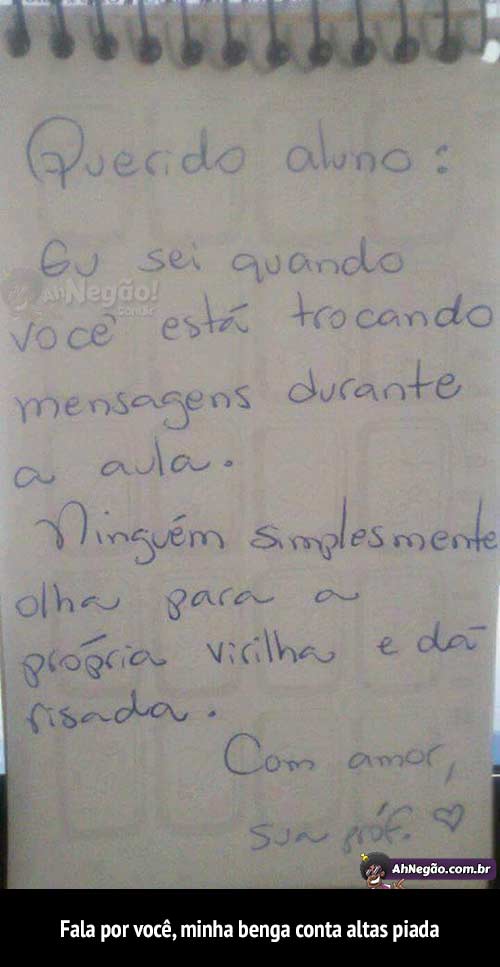 Querido aluno:
Eu sei quando
você está trocando
mensagens durante
a aula.
Ninguém simplesmente
olha para a
própria virilha e dá
risada.
Com amor,
sua próf. ♡
AhNegão!
.com.br
AhNegão.com.br
Fala por você, minha benga conta altas piada